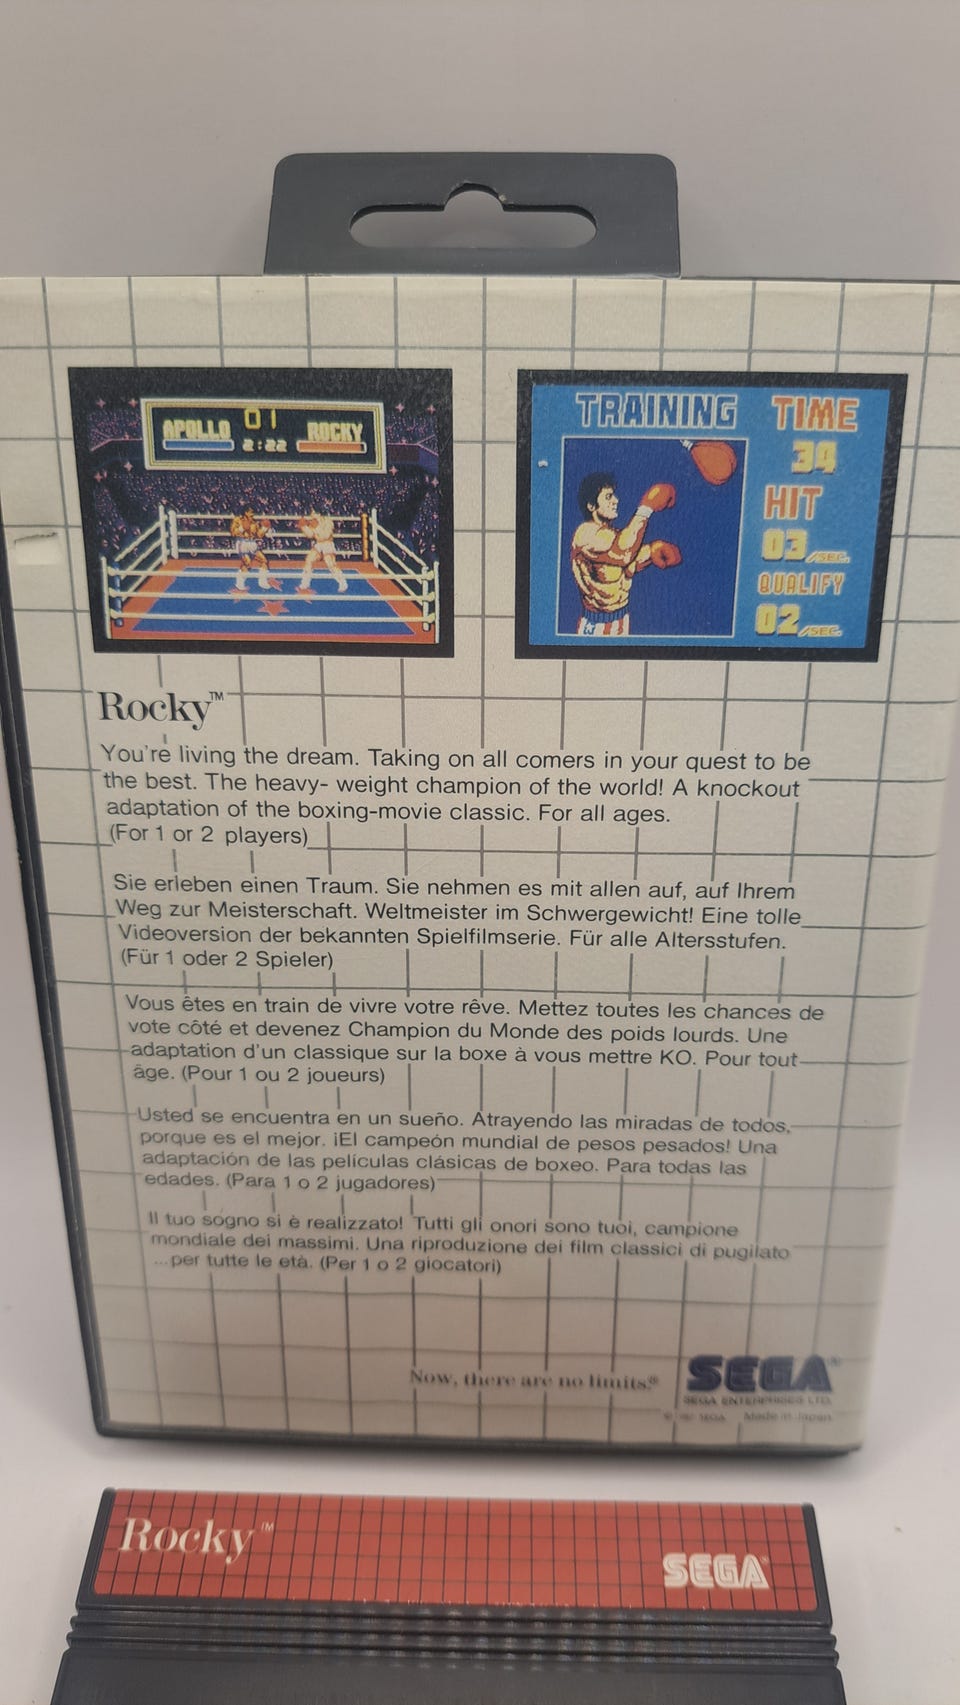 APOLLO 01 ROCKY
2:22
TRAINING TIME
39
HIT
03 /SEC.
QUALIFY
02 /SEC.
Rocky™
You're living the dream. Taking on all comers in your quest to be
the best. The heavy- weight champion of the world! A knockout
adaptation of the boxing-movie classic. For all ages.
(For 1 or 2 players)
Sie erleben einen Traum. Sie nehmen es mit allen auf, auf Ihrem
Weg zur Meisterschaft. Weltmeister im Schwergewicht! Eine tolle
Videoversion der bekannten Spielfilmserie. Für alle Altersstufen.
(Für 1 oder 2 Spieler)
Vous êtes en train de vivre votre rêve. Mettez toutes les chances de
vote côté et devenez Champion du Monde des poids lourds. Une
adaptation d'un classique sur la boxe à vous mettre KO. Pour tout
âge. (Pour 1 ou 2 joueurs)
Usted se encuentra en un sueño. Atrayendo las miradas de todos,
porque es el mejor. ¡El campeón mundial de pesos pesados! Una
adaptación de las películas clásicas de boxeo. Para todas las
edades. (Para 1 o 2 jugadores)
Il tuo sogno si è realizzato! Tutti gli onori sono tuoi, campione
mondiale dei massimi. Una riproduzione dei film classici di pugilato
...per tutte le età. (Per 1 o 2 giocatori)
Now, there are no limits.® SEGA®
SEGA ENTERPRISES LTD.
SEGA Made in Japan
Rocky™
SEGA®